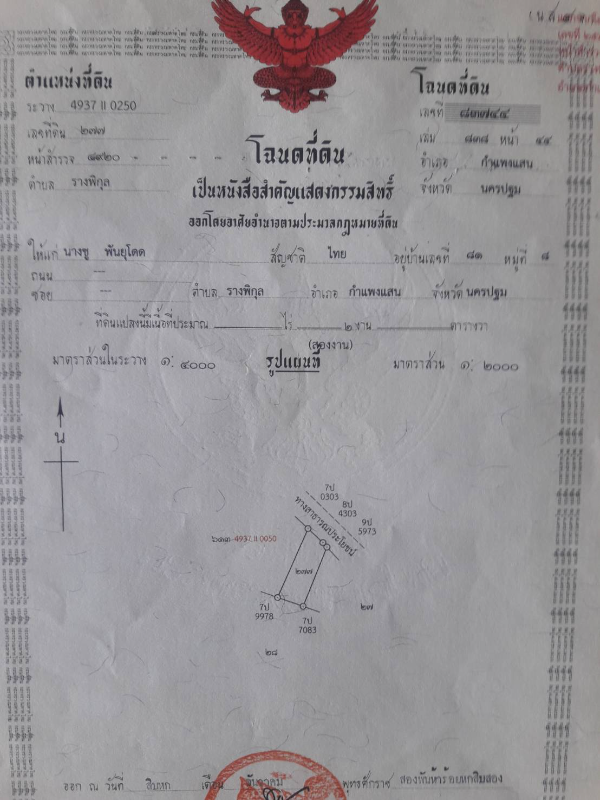 (น.ส. ๔
ตำแหน่งที่ดิน
ระวาง 4937 II 0250
เลขที่ดิน ๒๗๗
หน้าสำรวจ ๘๙๒๐
ตำบล รางพิกุล
โฉนดที่ดิน
เลขที่ ๘๓๗๔๔
เล่ม ๘๓๘ หน้า ๔๔
อำเภอ กำแพงแสน
จังหวัด นครปฐม
โฉนดที่ดิน
เป็นหนังสือสำคัญแสดงกรรมสิทธิ์
ออกโดยอาศัยอำนาจตามประมวลกฎหมายที่ดิน
ให้แก่ นางชู พันธุโคด สัญชาติ ไทย อยู่บ้านเลขที่ ๘๑ หมู่ที่ ๘
ถนน —
ซอย — ตำบล รางพิกุล อำเภอ กำแพงแสน จังหวัด นครปฐม
ที่ดินแปลงนี้มีเนื้อที่ประมาณ ไร่ ๒ งาน ตารางวา
(สองงาน)
มาตราส่วนในระวาง ๑: ๔๐๐๐ รูปแผนที่ มาตราส่วน ๑: ๒๐๐๐
น
7ป
0303
8ป
4303
9ป
5973
ทางสาธารณประโยชน์
4937 II 0050
๒๗๗
7ป
9978
7ป
7083
๒๗
๒๘
ออก ณ วันที่ สิบหก เดือน ธันวาคม พุทธศักราช สองพันห้าร้อยหกสิบสอง